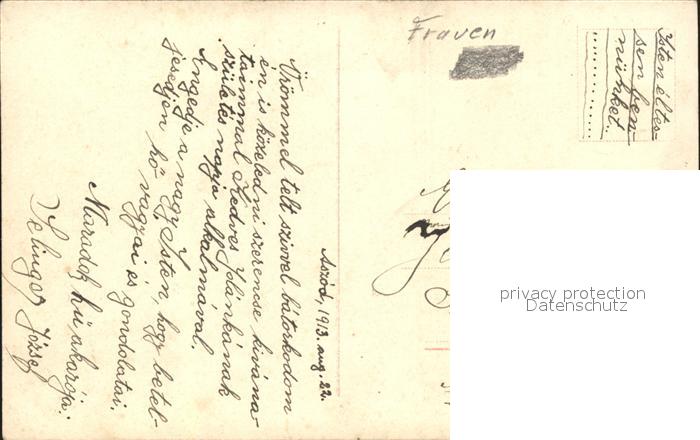 Frauen
Isten éltes-
sen ben-
nünket.
Aszód, 1913. aug. 22.
Örömmel telt szivvel bátorkodom
én is közeledni szerencse kivána-
taimmal Kedves Jolánkának
születés napja alkalmával.
Engedje a nagy Isten, hogy betel-
jesedjen hő vágyai és gondolatai.
Maradok hű akarója:
József
privacy protection
Datenschutz